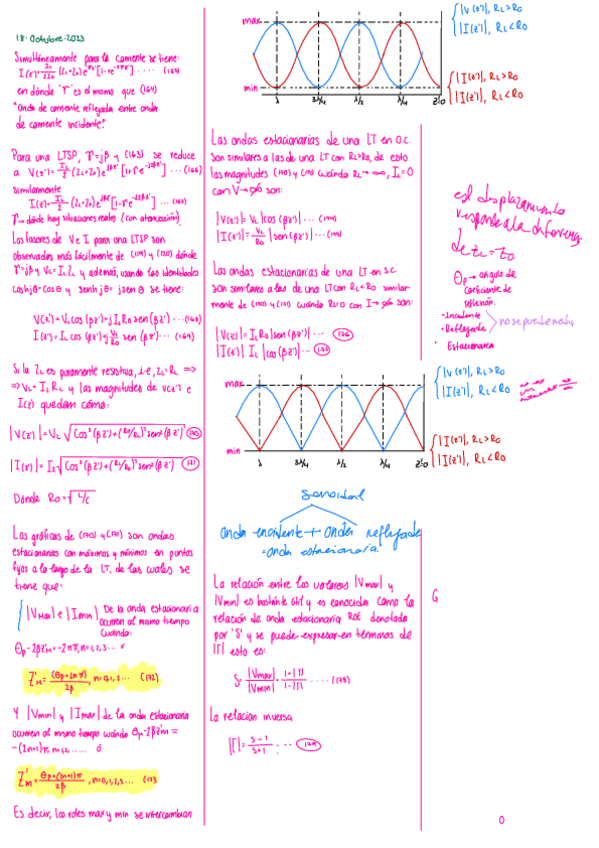 18·Octubre·2023
Simultáneamente para la corriente se tiene:
en dónde "Γ" es el mismo que (164)
"Onda de corriente reflejada entre onda
de corriente incidente"
Para una LTSP, γ=jβ y (163) se reduce
a V(z')= I_L/2 (Z_L+Z_0)e^{jβz'}[1+Γe^{-j2βz'}]... (166)
similarmente
I(z')= I_L/2Z_0 (Z_L+Z_0)e^{jβz'}[1-Γe^{-j2βz'}]
Γ→ dónde hay situaciones reales (con atenuación).
Los fasores de V e I para una LTSP son
observados más fácilmente de (119) y (120) dónde
γ=jβ y V_L=I_L Z_L y además, usando las identidades
coshjθ=cosθ y senhjθ= jsenθ se tiene:
V(z')=V_L cos(βz')+jI_L R_0 sen(βz')...(168)
I(z')=I_L cos(βz')+j V_L/R_0 sen(βz')...(169)
Si la Z_L es puramente resistiva, i.e, Z_L=R_L =>
=> V_L= I_L R_L y las magnitudes de V(z') e
I(z') quedan cómo:
|V(z')|=V_L √Cos²(βz')+(R_0/R_L)²sen²(βz') (170)
|I(z')|=I_L √Cos²(βz')+(R_L/R_0)²sen²(βz') (171)
Dónde R_0=√L/C
Las gráficas de (170) y (171) son ondas
estacionarias con máximos y mínimos en puntos
fijos a lo largo de la LT, de las cuales se
tiene que:
|V_Max| e |I_min| De la onda estacionaria
ocurren al mismo tiempo
Cuándo:
θ_Γ-2βz'_M=-2nπ, n=0,1,2,3...
Z'_M= (θ_Γ+2nπ)/2β, n=0,1,2... (172)
Y |V_min| y |I_max| de la onda estacionaria
ocurren al mismo tiempo cuándo θ_Γ-2βz'_m=
-(2n+1)π n=0,1,2..... ó
Z'_m= θ_Γ+(2n+1)π/2β, n=0,1,2,3... (173
Es decir, los roles max y min se intercambian
max
min
λ 3λ/4 λ/2 λ/4 z'=0
|V(z')|, R_L>R_0
|I(z')|, R_L<R_0
|I(z')|, R_L>R_0
|V(z')|, R_L<R_0
Las ondas estacionarias de una LT en O.C
son similares a las de una LT con R_L>R_0, de esto
las magnitudes (170) y (171) cuándo R_L→∞, I_L=0
con V→ son:
|V(z')|= V_L |cos(βz')|... (174)
|I(z')|= V_L/R_0 |sen(βz')|... (175)
Las ondas estacionarias de una LT en S.C
son similares a las de una LT con R_L<R_0 similar-
mente de (170) y (171) cuándo R_L=0 con I→ son:
|V(z')|= I_L R_0 |sen(βz')|... (176)
|I(z')| I_L |cos(βz')|... (177)
max
min
λ 3λ/4 λ/2 λ/4 z'=0
|V(z')|, R_L>R_0
|I(z')|, R_L<R_0
|I(z')|, R_L>R_0
|V(z')|, R_L<R_0
Senoidal
onda incidente + onda reflejada
=onda estacionaria
La relación entre los valores |V_max| y
|V_min| es bastante útil y es conocida como la
relación de onda estacionaria ROE denotada
por 'S' y se puede expresar en términos de
|Γ| esto es:
S= |V_max|/|V_min| = 1+|Γ|/1-|Γ| .... (178)
La relación inversa
|Γ|= S-1/S+1 ... (179)
el desplazamiento
responde a la diferencia
de Z_L = Z_0
θ_Γ→ angulo de
Coeficiente de
reflexión.
• Incidente
• Reflejada > no se puede medir
• Estacionaria
G
0